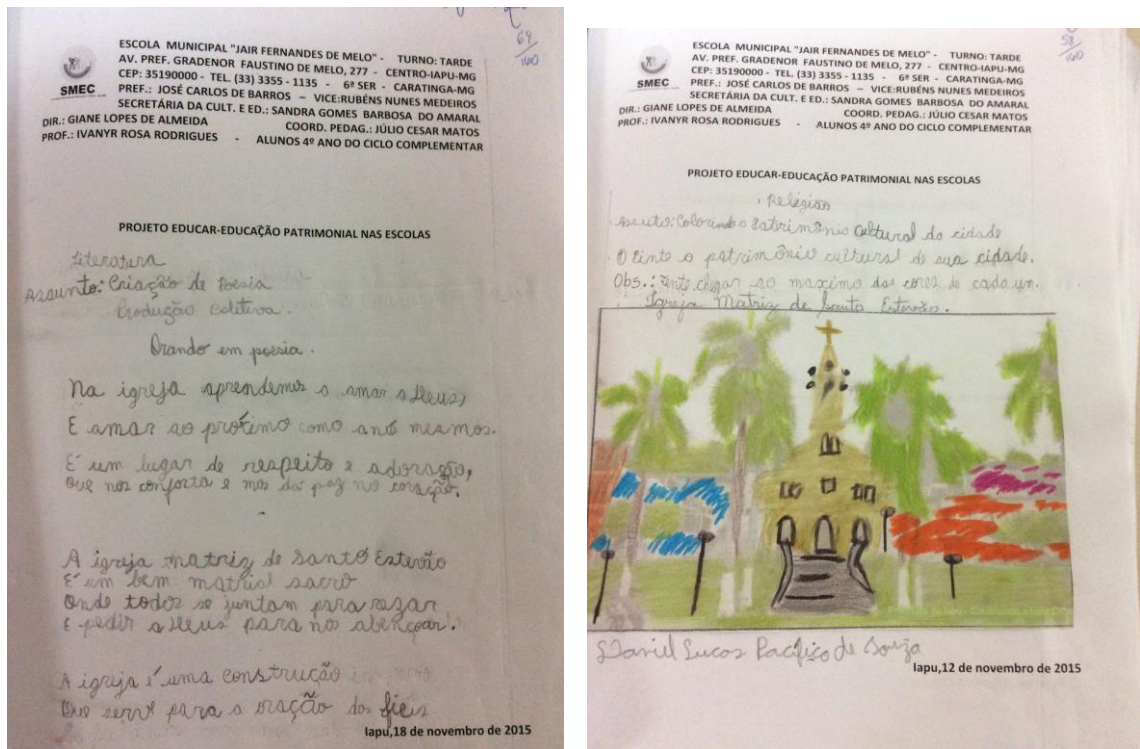 64/160
ESCOLA MUNICIPAL "JAIR FERNANDES DE MELO" - TURNO: TARDE
AV. PREF. GRADENOR FAUSTINO DE MELO, 277 - CENTRO-IAPU-MG
CEP: 35190000 - TEL. (33) 3355 - 1135 - 6ª SER - CARATINGA-MG
PREF.: JOSÉ CARLOS DE BARROS – VICE:RUBÉNS NUNES MEDEIROS
SECRETÁRIA DA CULT. E ED.: SANDRA GOMES BARBOSA DO AMARAL
SMEC
DIR.: GIANE LOPES DE ALMEIDA COORD. PEDAG.: JÚLIO CESAR MATOS
PROF.: IVANYR ROSA RODRIGUES - ALUNOS 4º ANO DO CICLO COMPLEMENTAR
PROJETO EDUCAR-EDUCAÇÃO PATRIMONIAL NAS ESCOLAS
Literatura
Assunto: Criação de Poesia
Produção coletiva.
Orando em poesia.
Na igreja aprendemos a amar a Deus,
E amar ao próximo como a nós mesmos.
É um lugar de respeito e adoração,
Que nos conforta e nos dá paz no coração.
A igreja matriz de Santo Estevão
É um bem matrial sacro
Onde todos se juntam para rezar
E pedir a Deus para nos abençoar.
A igreja é uma construção
Que serve para a oração dos fiéis
Iapu,18 de novembro de 2015
58/160
ESCOLA MUNICIPAL "JAIR FERNANDES DE MELO" - TURNO: TARDE
AV. PREF. GRADENOR FAUSTINO DE MELO, 277 - CENTRO-IAPU-MG
CEP: 35190000 - TEL. (33) 3355 - 1135 - 6ª SER - CARATINGA-MG
PREF.: JOSÉ CARLOS DE BARROS – VICE:RUBÉNS NUNES MEDEIROS
SECRETÁRIA DA CULT. E ED.: SANDRA GOMES BARBOSA DO AMARAL
SMEC
DIR.: GIANE LOPES DE ALMEIDA COORD. PEDAG.: JÚLIO CESAR MATOS
PROF.: IVANYR ROSA RODRIGUES - ALUNOS 4º ANO DO CICLO COMPLEMENTAR
PROJETO EDUCAR-EDUCAÇÃO PATRIMONIAL NAS ESCOLAS
Religioso
Assunto: Colorindo o Patrimônio cultural da cidade
O Pinte o patrimônio cultural de sua cidade.
Obs.: Tente chegar ao maximo das cores de cada um.
Igreja Matriz de Santo Estevão.
Daniel Lucas Pacífico de Souza
Iapu,12 de novembro de 2015